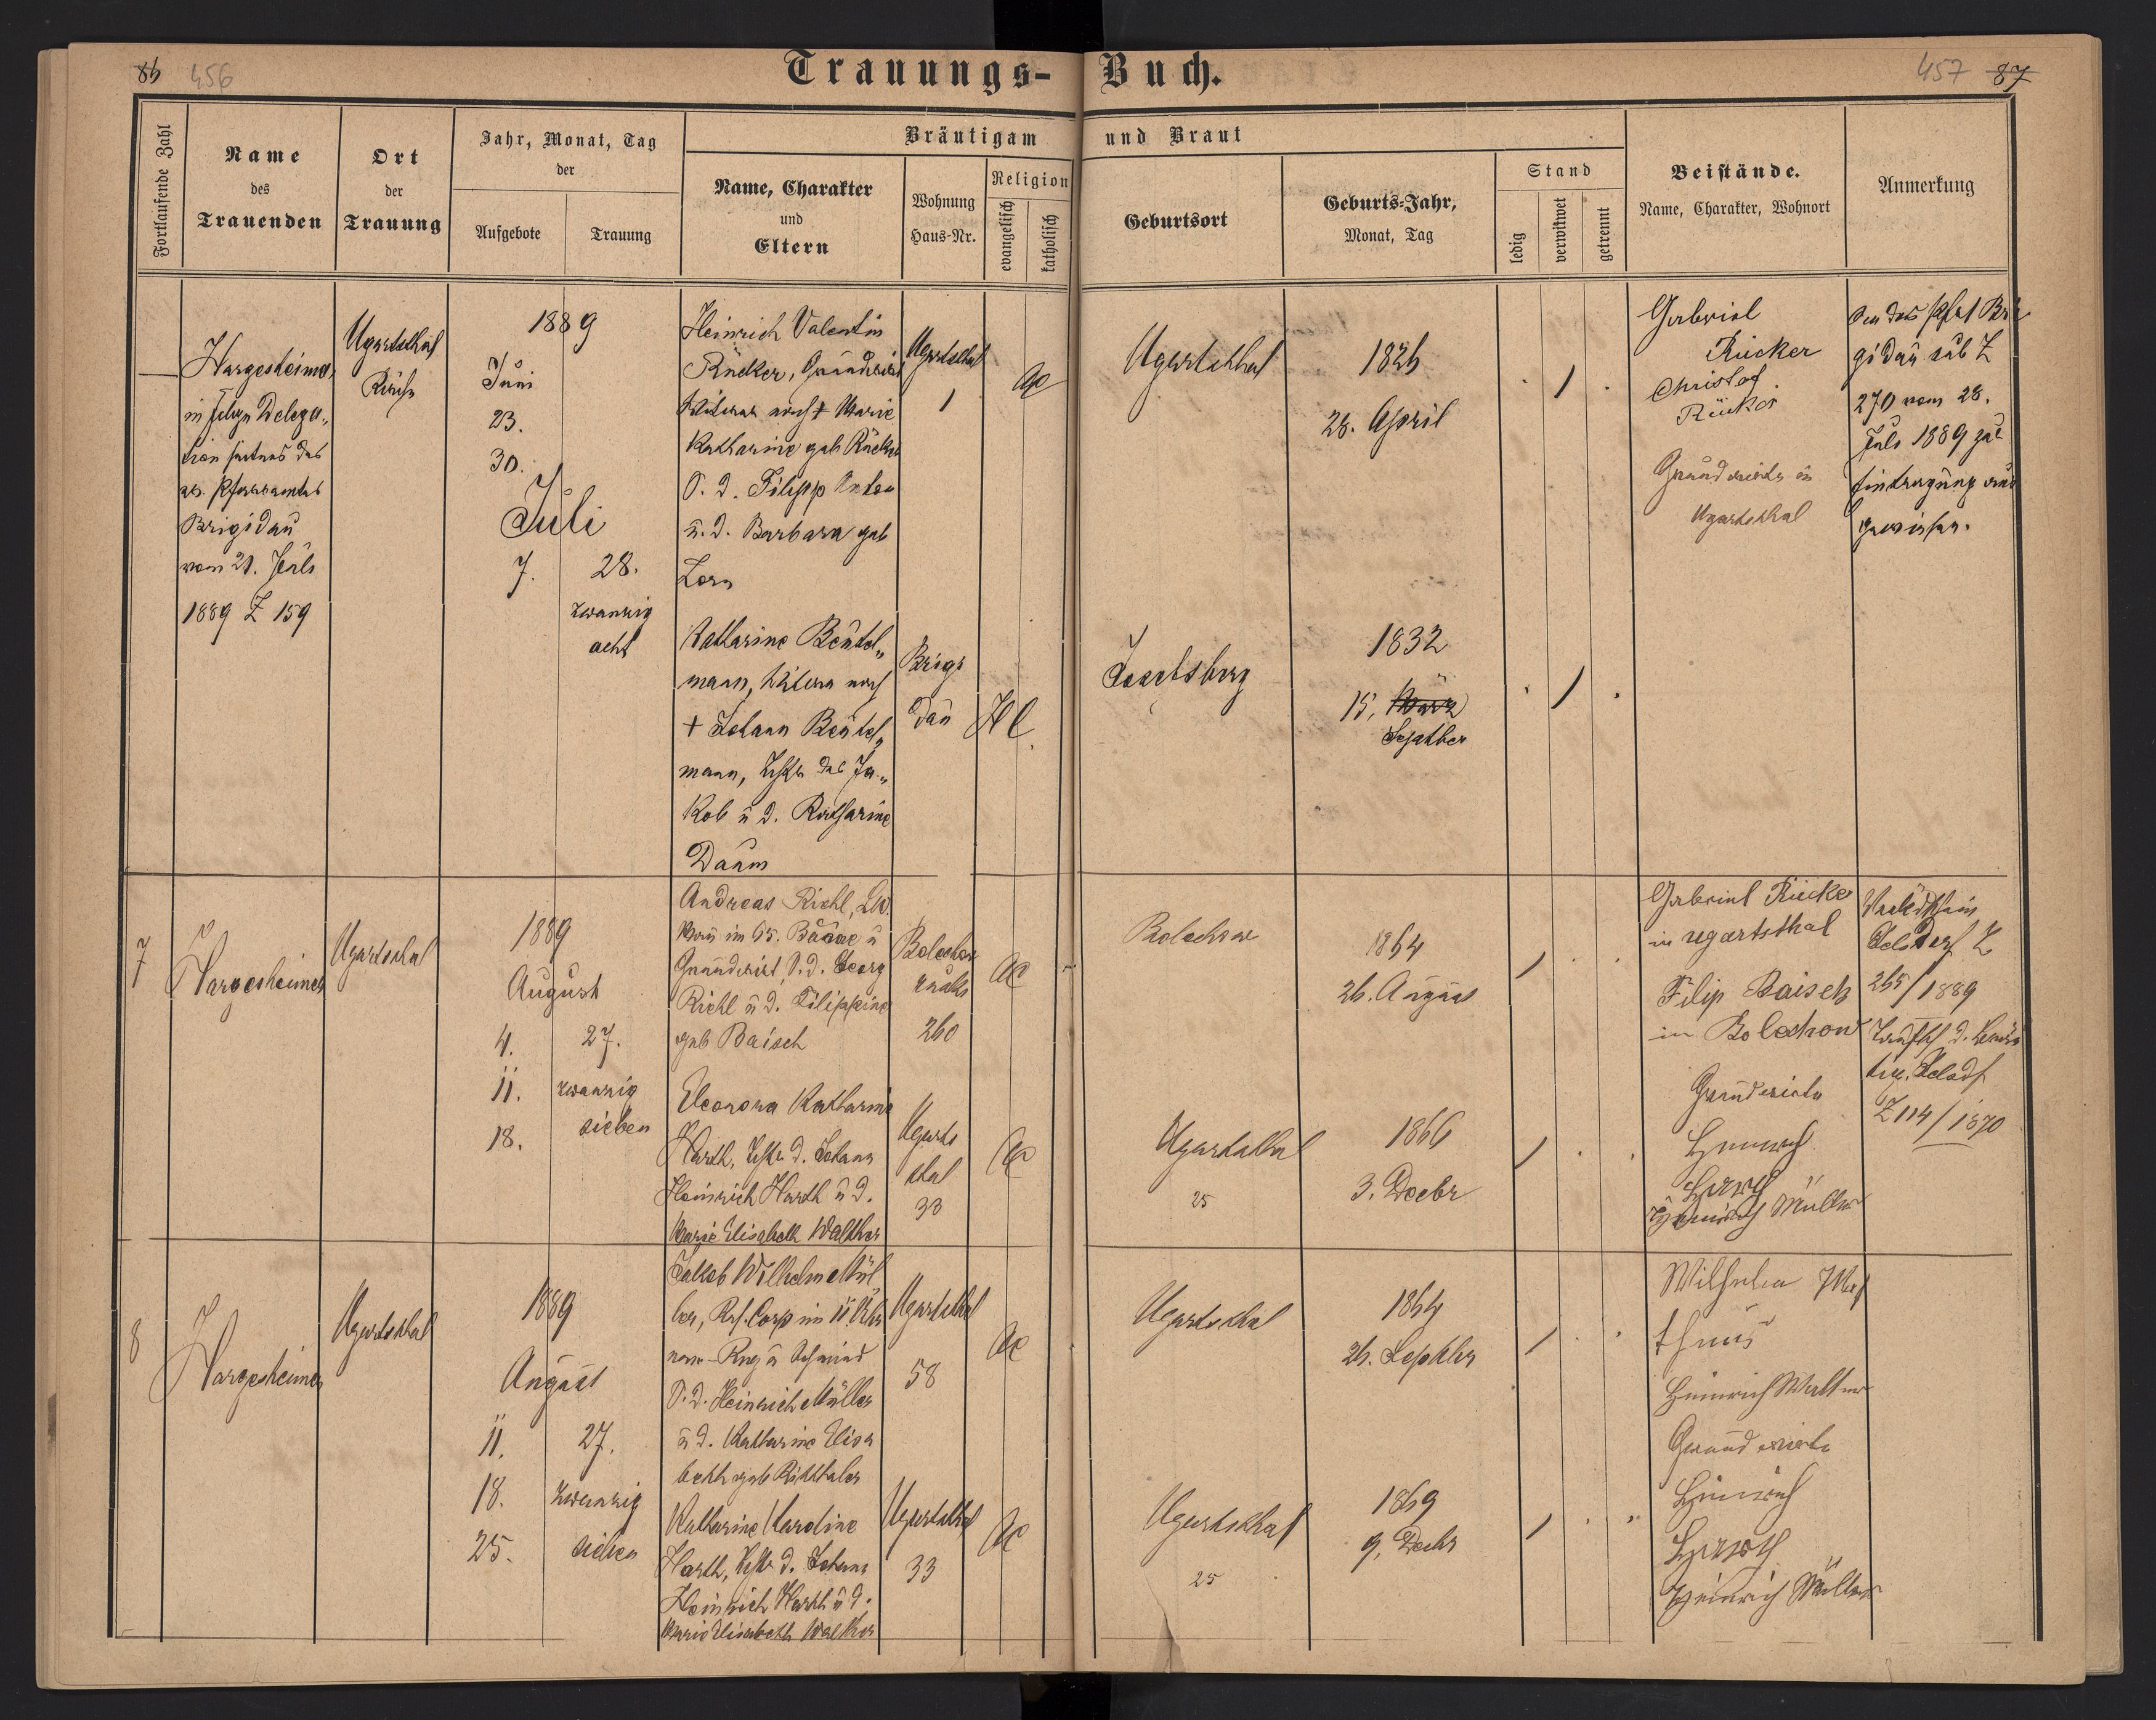 86 456
Trauungs-Buch.
457 87
Fortlaufende Zahl
Name
des
Trauenden
Ort
der
Trauung
Jahr, Monat, Tag
der
Aufgebote
Trauung
Bräutigam und Braut
Name, Charakter
und
Eltern
Wohnung
Haus-Nr.
Religion
evangelisch
katholisch
Geburtsort
Geburts-Jahr,
Monat, Tag
Stand
ledig
verwitwet
getrennt
Beistände.
Name, Charakter, Wohnort
Anmerkung
Hargesheimer,
in folge Delega-
tion seitens des
ev. Pfarramtes
Brigidau
vom 21. Juli
1889 Z 159
Ugartsthal
Kirche
1889
Juni
23.
30.
Juli
7.
28.
zwanzig
acht
Heinrich Valentin
Rücker, Grundwirt
Witwer nach + Marie
Katharine geb Rücker
S. d. Filipp Anton
u. d. Barbara geb
Ugartsthal
1
Ugartsthal
1826
28. April
Gabriel
Rücker
Christof
Rücker
Grundwirte in
Ugartsthal
270 vom 28.
Juli 1889 zur
Eintragung
Katharine Beutel„
mann, Witwe nach
+ Johann Beutel„
mann, des Ja„
kob u d. Katharine
Daum
Brigi
dau
H C
Josefsberg
1832
15. März
Septber
7
Hargesheimer
Ugartsthal
1889
August
4.
11.
18.
27.
zwanzig
sieben
Andreas Richl,
im 65.
Grundwirt, S. d. Georg
Richl u d. Filippine
geb Baisch
Bolechow
260
AC
Bolechow
1864
26. August
Gabriel Rücker
in Ugartsthal
Filip Baisch
in Bolechow
Grundwirte
Heinrich
Harth
Heinrich Müller
265/1889
Z 114/1870
Eleonora Katharine
Harth, d. Johann
Heinrich Harth u d.
Marie Elisabeth Walther
Ugarts
thal
33
AC
Ugartsthal
25
1866
3. Decbr
8
Hargesheimer
Ugartsthal
1889
August
11.
18.
25.
27.
zwanzig
sieben
Jakob Wilhelm Mül
ler, Res. Corp im
S. d. Heinrich Müller
u d. Katharine Elisa
beth geb Ritthaler
Ugartsthal
58
AC
Ugartsthal
1864
26. Septbr
Wilhelm
Heinrich Walther
Grundwirte
Heinrich
Harth
Heinrich Müller
Katharine Karoline
Harth, d. Johann
Heinrich Harth u d.
Marie Elisabeth Walther
Ugartsthal
33
AC
Ugartsthal
25
1869
9. Decbr